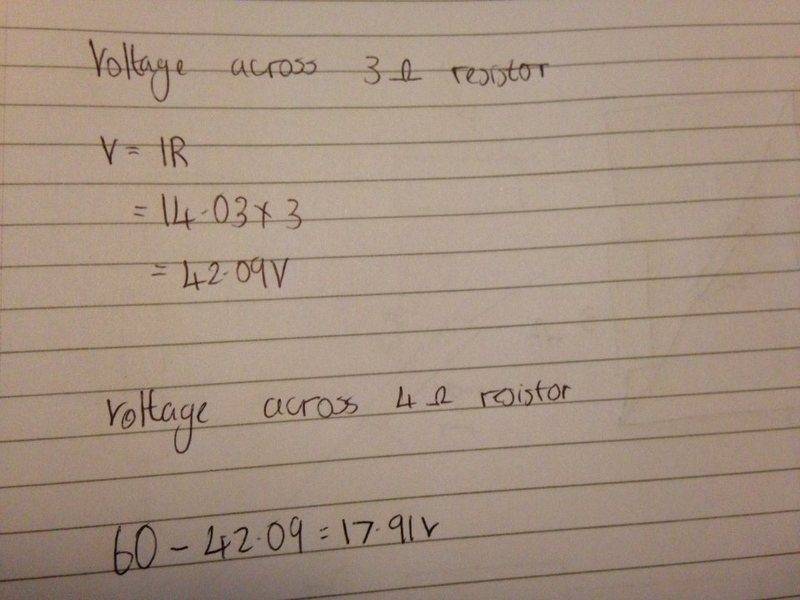 Voltage across 3Ω resistor
V = IR
= 14.03 x 3
= 42.09V
Voltage across 4Ω resistor
60 - 42.09 = 17.91V